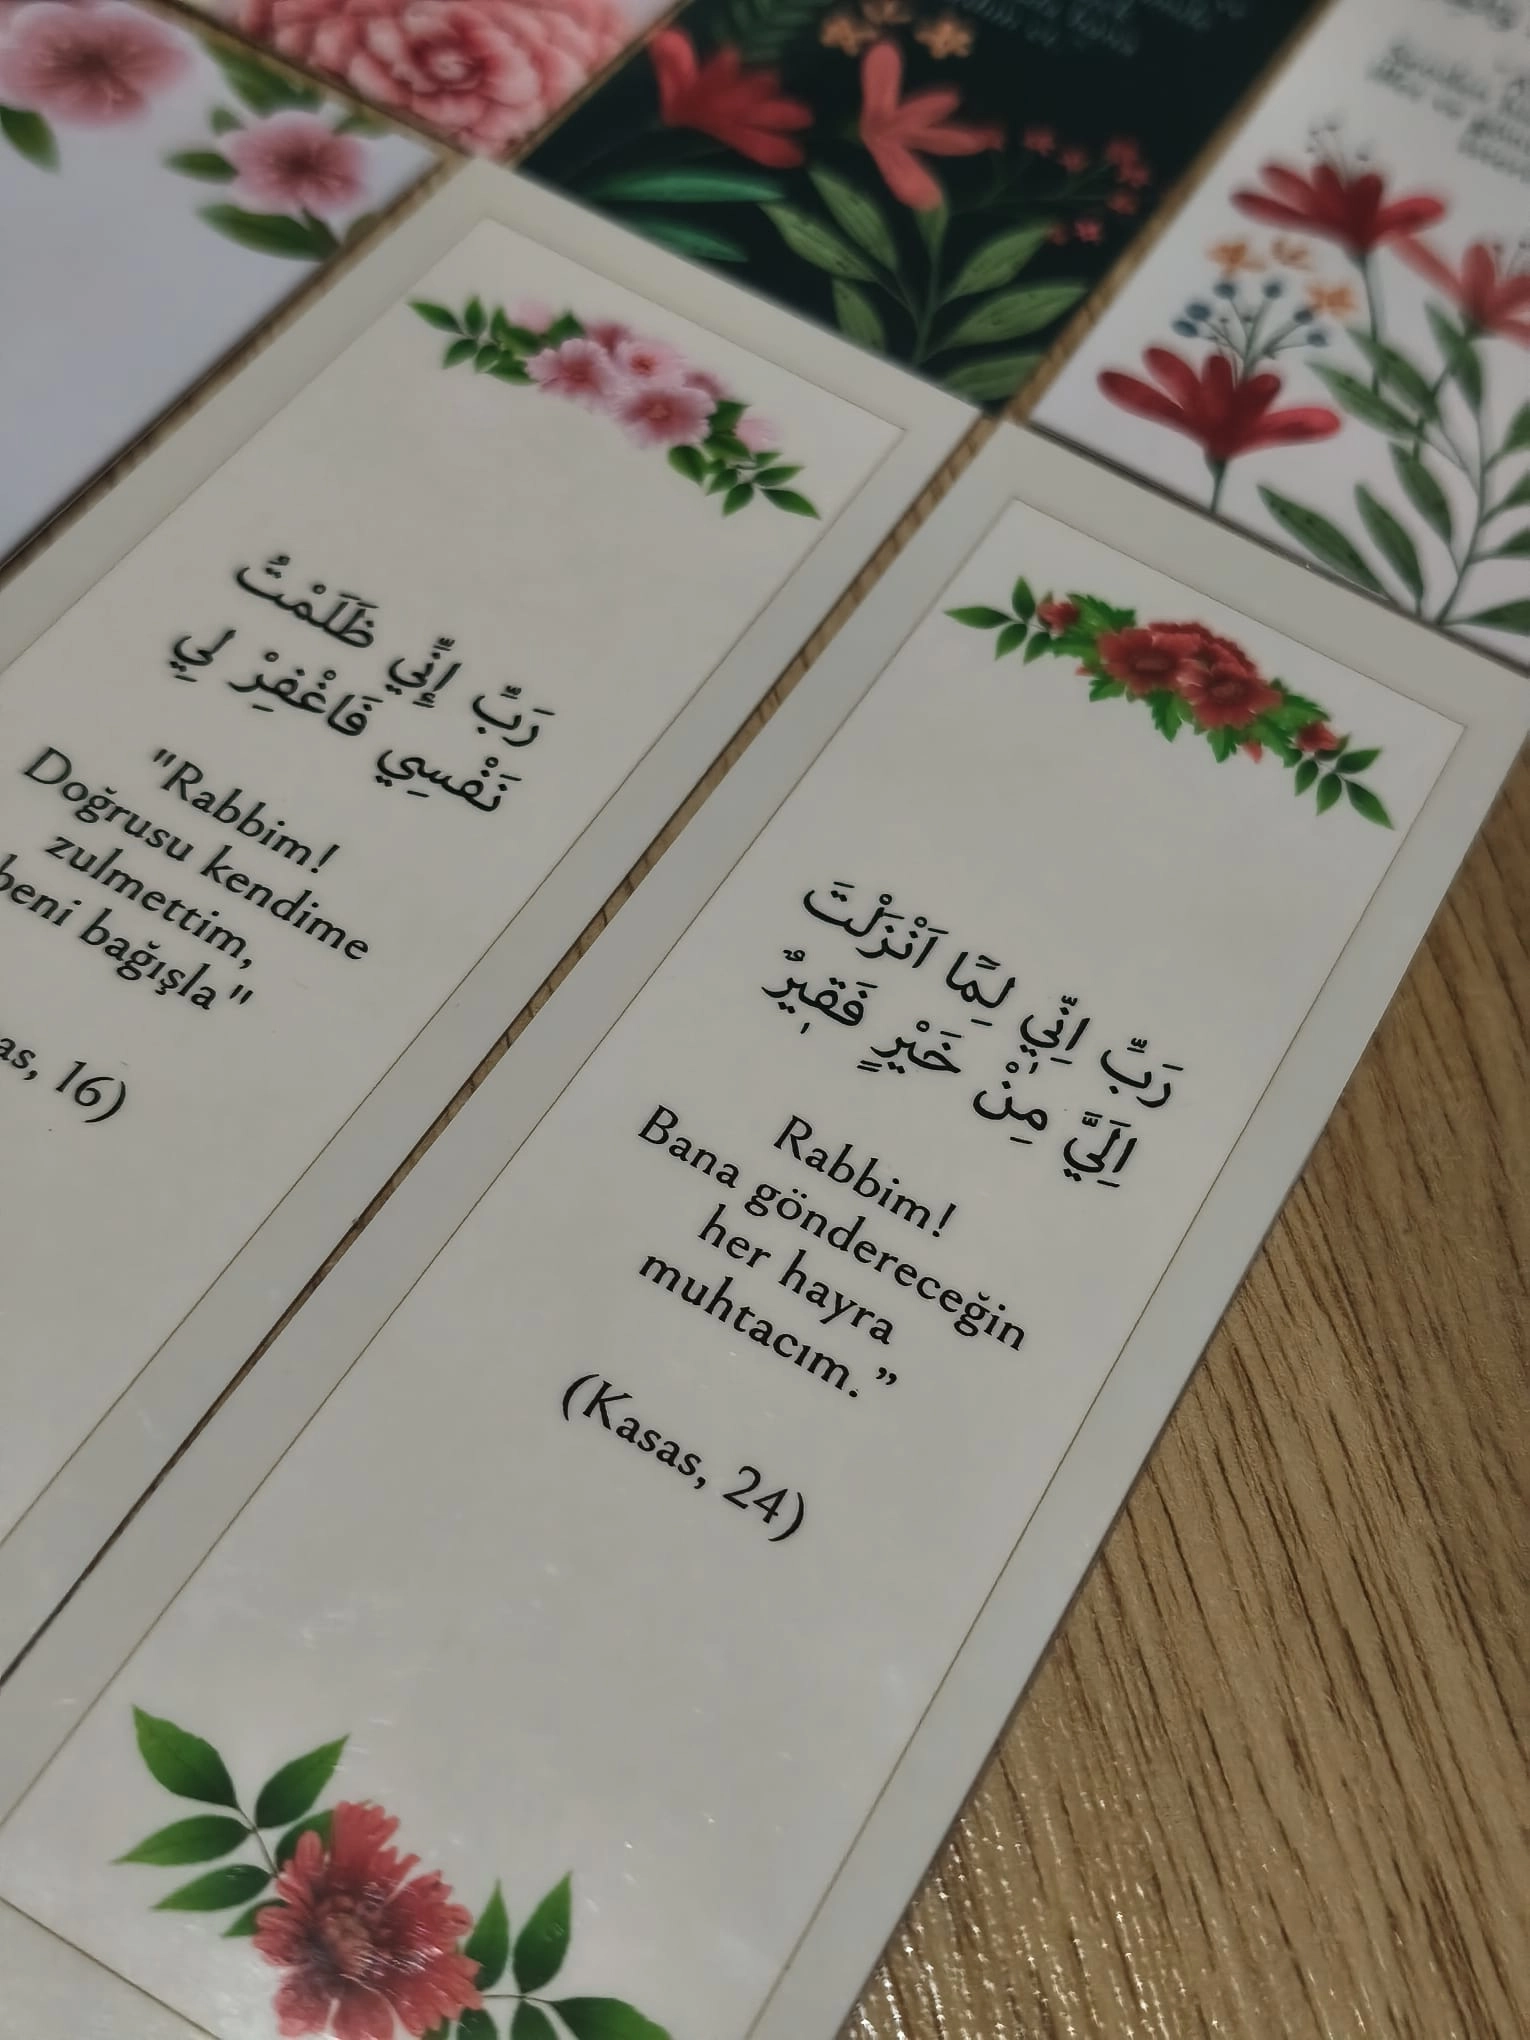 رَبِّ إِنِّي ظَلَمْتُ
نَفْسِي فَاغْفِرْ لِي
"Rabbim!
Doğrusu kendime
zulmettim,
beni bağışla"
16)
رَبِّ اِنِّي لِمَٓا اَنْزَلْتَ
اِلَيَّ مِنْ خَيْرٍ فَقٖيرٌ
Rabbim!
Bana göndereceğin
her hayra
muhtacım.”
(Kasas, 24)